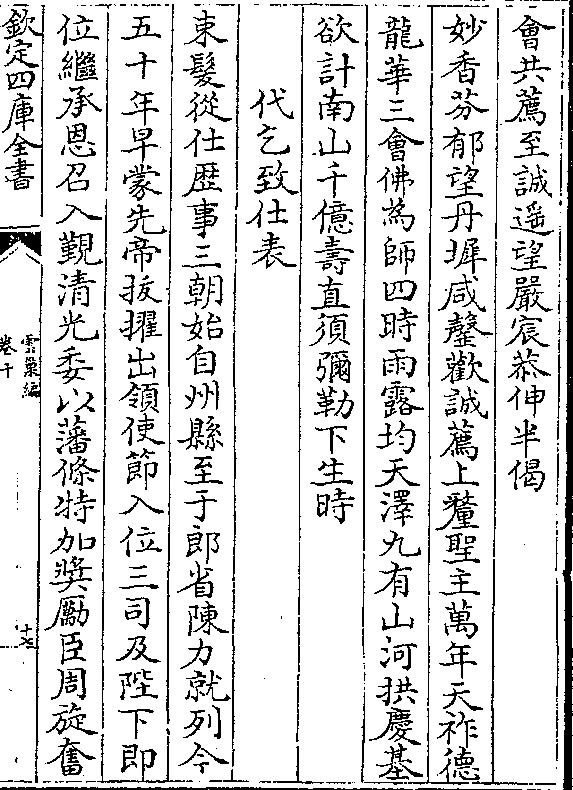 會共薦至誠遥望嚴宸恭伸半偈
妙香芬郁望丹墀咸罄歡誠薦上釐聖主萬年天祚德
龍華三會佛為師四時雨露均天澤九有山河拱慶基
欲計南山千億壽直須彌勒下生時
代乞致仕表
束髮從仕歴事三朝始自州縣至于郎省陳力就列今
五十年早蒙先帝拔擢出領使節入位三司及陛下即
位繼承恩召入覲清光委以藩條特加奬厲臣周旋奮
欽定四庫全書
雲巢編
卷十
十七